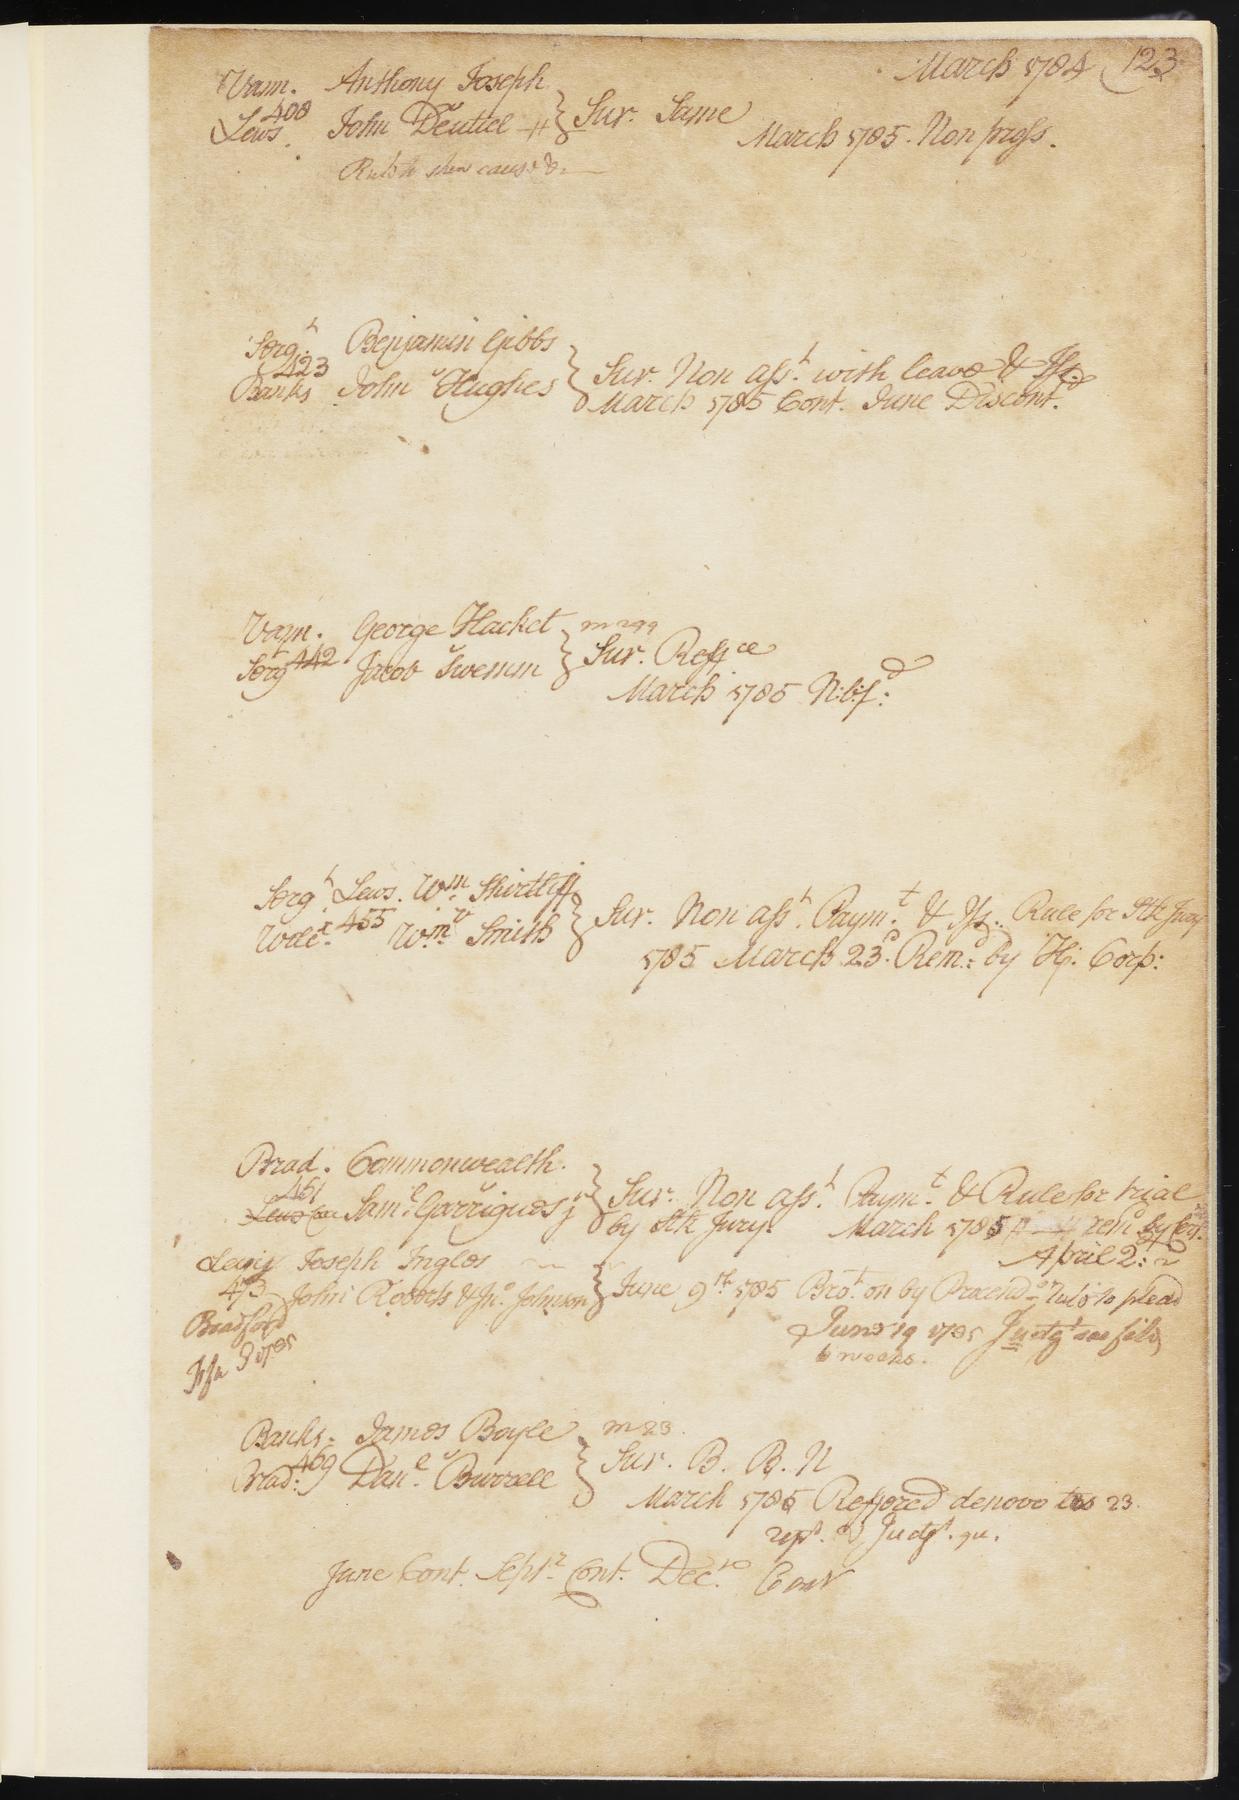 March 1784 (123
Vann. Anthony Joseph
408
Lews. John Deutiel } Sur. Same
March 1785. Non pross.
Rule to shew cause &c
Serg.t Benjamin Gibbs
423
Banks John Hughes } Sur. Non ass.t with leave & Iss.
March 1785 Cont. June Discont.d
Vann. George Hacket m 299
Serg.t 442 Jacob Swemm } Sur. Reff.ce
March 1785 N:b:f:d
Serg.t Lews. W.m Shirtliff
Wilc. 455 v W.m Smith } Sur. Non ass.t Paym.t & Iss. Rule for Stk Jury
1785 March 23.d Rem.d by H: Corp:
Brad. Commonwealth.
451
Sam.l Garrigues j.r } Sur. Non ass.t Paym.t & Rule for trial
by Stk Jury. March 1785 rem.d by Cert.
April 2:
Levy Joseph Inglos
473 John Roberts & Jn.o Johnson } June 9th 1785 Bro.t on by Procend.o Rule to plead
Bradford
June 19 1785 Judg.t
6 weeks.
Banks. James Boyle m 23.
Brad: 469 Dan.l Burrell } Sur. B. B. N
March 1785 Reffered denovo 23.
rep.t Judg.t
June Cont. Sept.r Cont. Dec.r Cont